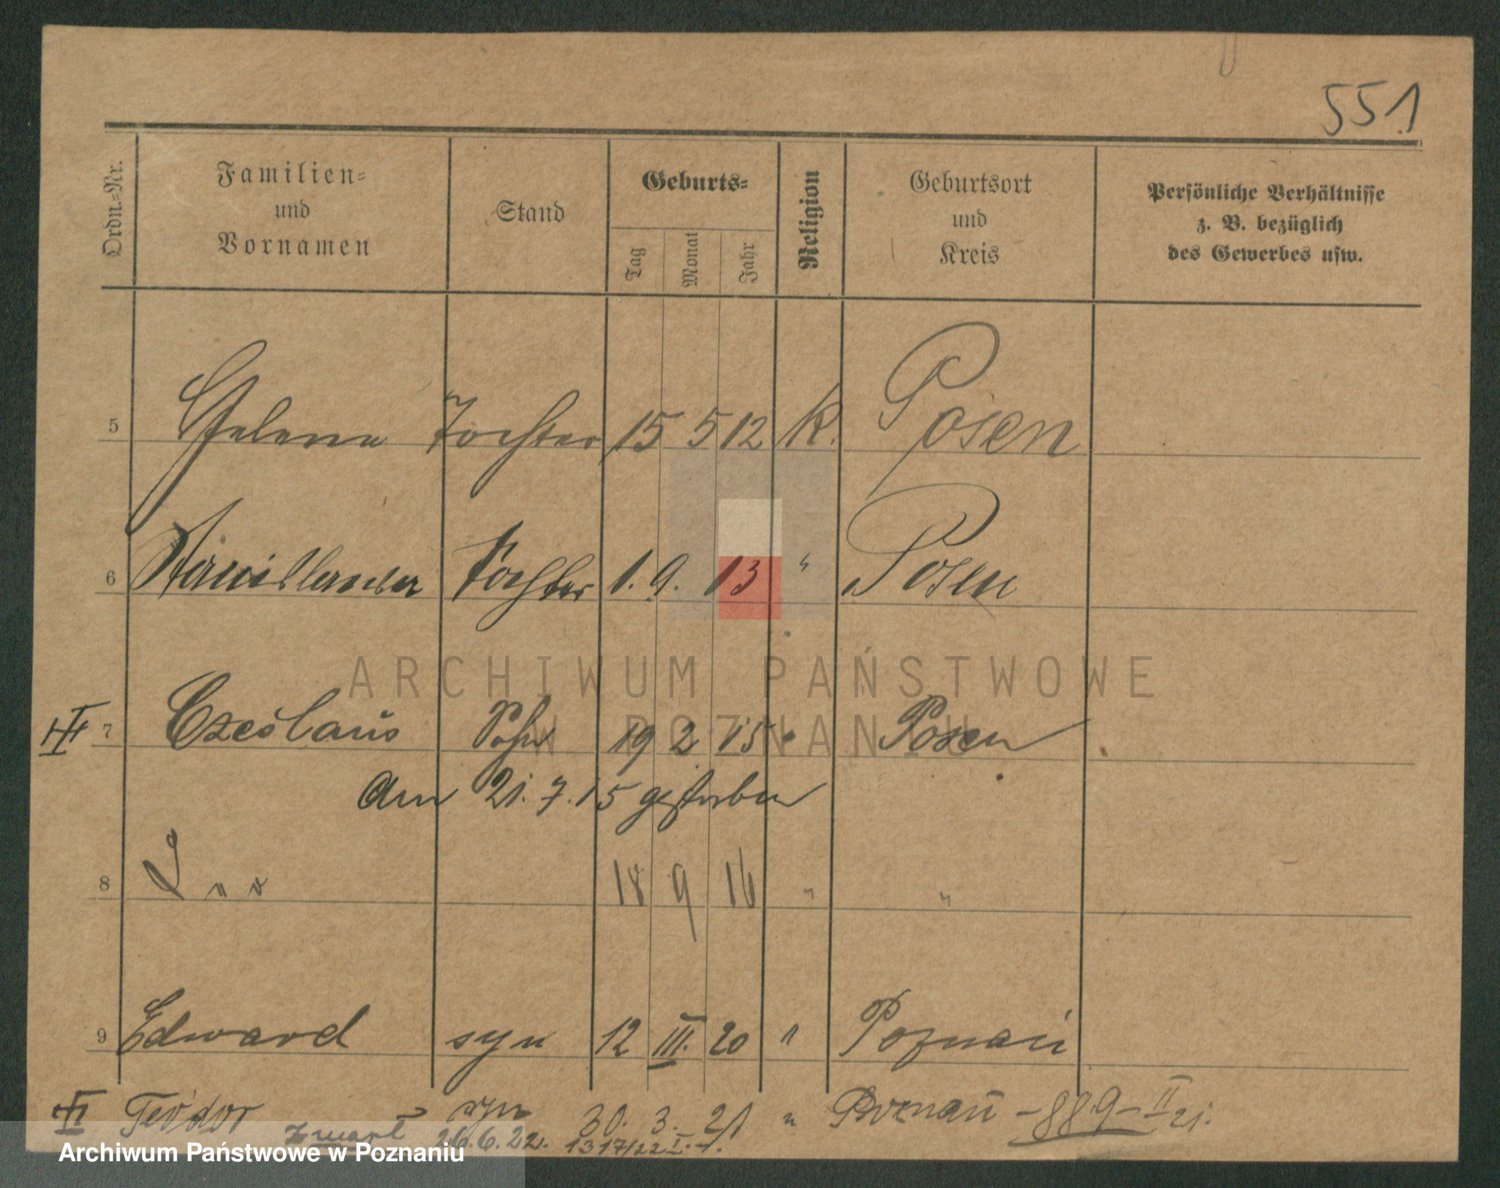 551
Ordn.-Nr.
Familien-
und
Vornamen
Stand
Geburts-
Tag
Monat
Jahr
Religion
Geburtsort
und
Kreis
Persönliche Verhältnisse
z. B. bezüglich
des Gewerbes usw.
5 Helena Tochter 15 5 12 K. Posen
6 Tochter 1. 9. 13 " Posen
ARCHIWUM PAŃSTWOWE
W POZNANIU
7 Czeslaus Sohn 19 2 15 " Posen
am 21.7.15 gestorben
8 18 9 16 " "
9 Edward syn 12 III. 20 " Poznań
Teodor syn 30. 3. 21 " Poznań -889-II 21.
zmarł 26.6.22. 1317/22 I.
Archiwum Państwowe w Poznaniu